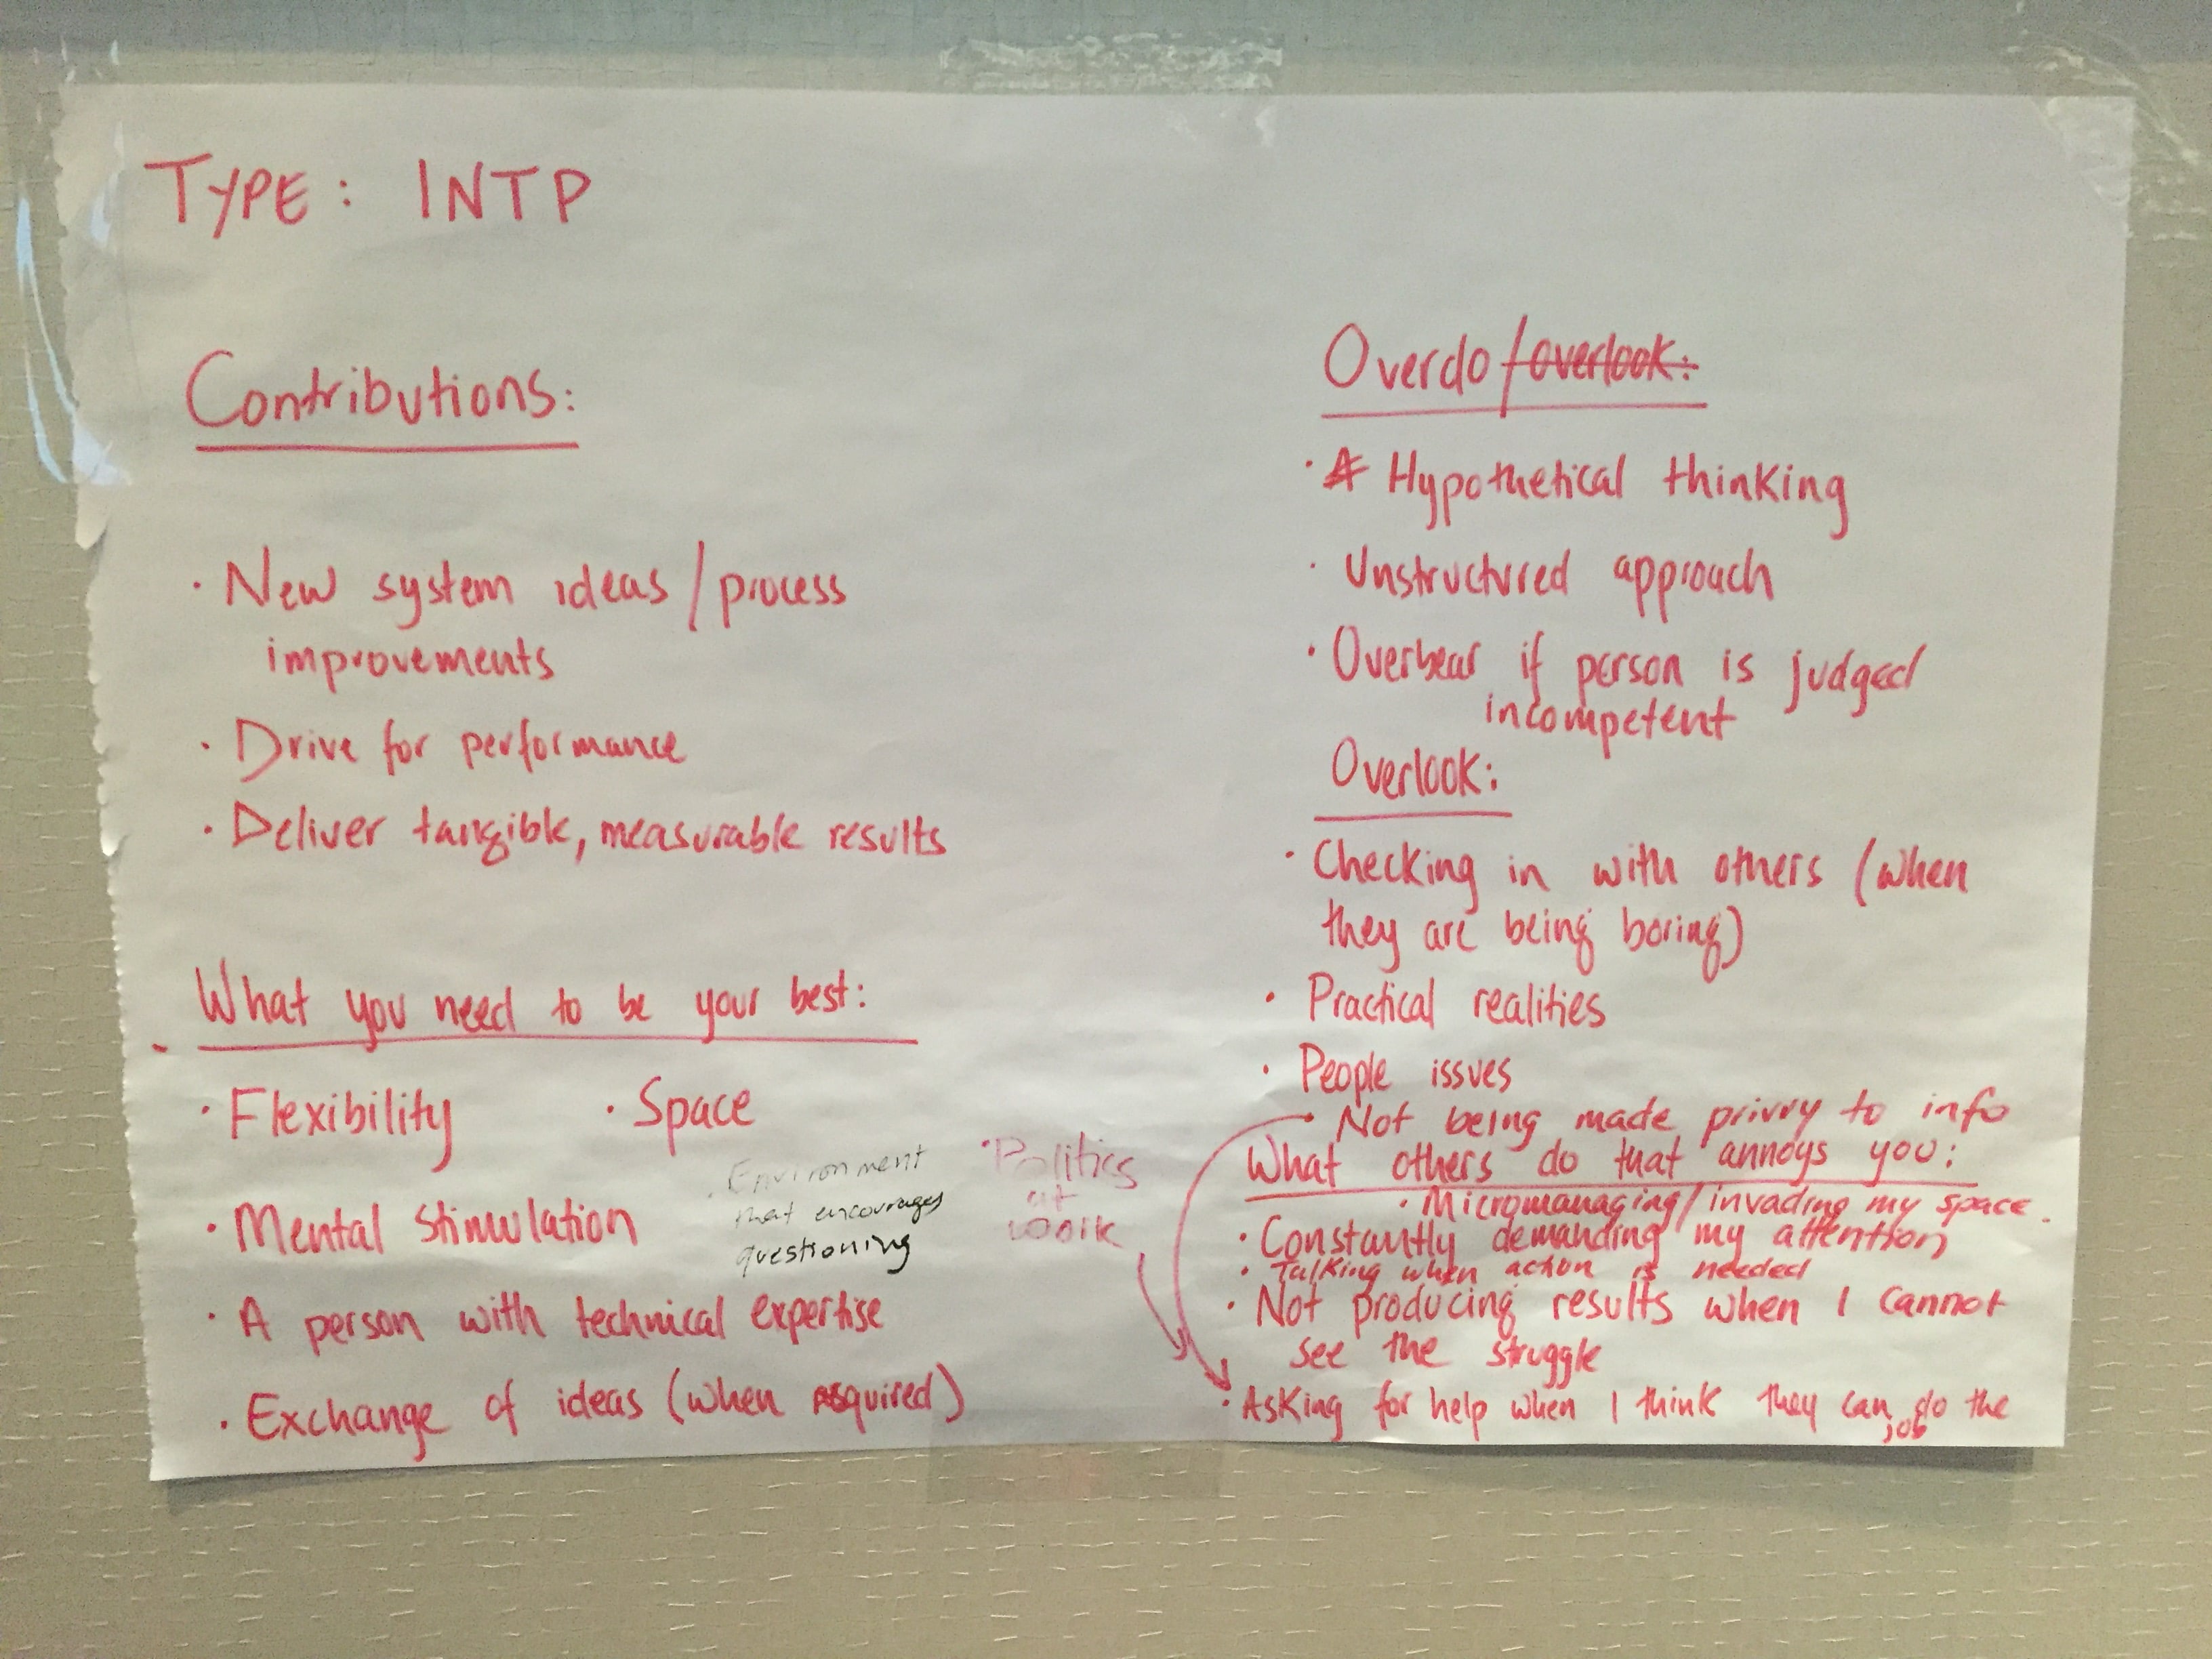 TYPE: INTP
Contributions:
· New system ideas / process
improvements
· Drive for performance
· Deliver tangible, measurable results
What you need to be your best:
· Flexibility · Space
· Mental stimulation
· Environment
that encourages
questioning
· A person with technical expertise
· Exchange of ideas (when required)
· Politics
at
work
Overdo / overlook:
· Hypothetical thinking
· Unstructured approach
· Overbear if person is judged
incompetent
Overlook:
· Checking in with others (when
they are being boring)
· Practical realities
· People issues
· Not being made privvy to info
What others do that annoys you:
· Micromanaging / invading my space.
· Constantly demanding my attention
· Talking when action is needed
· Not producing results when I cannot
see the struggle
· Asking for help when I think they can do the
job